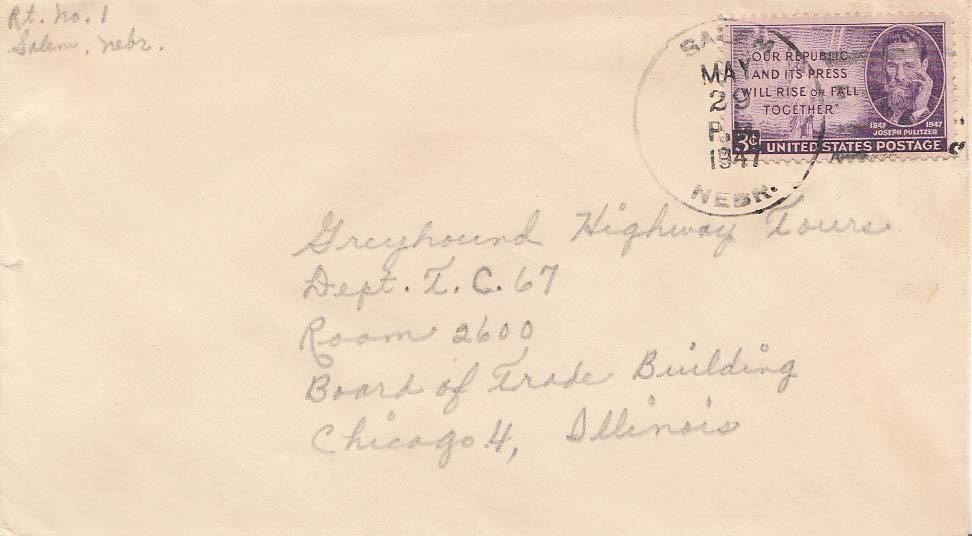 Rt. No. 1
Salem, Nebr.
SALEM
MAY
29
P.M.
1947
NEBR.
"OUR REPUBLIC
AND ITS PRESS
WILL RISE OR FALL
TOGETHER"
1847 1947
JOSEPH PULITZER
3¢ UNITED STATES POSTAGE
Greyhound Highway Tours
Dept. T. C. 67
Room 2600
Board of Trade Building
Chicago 4, Illinois